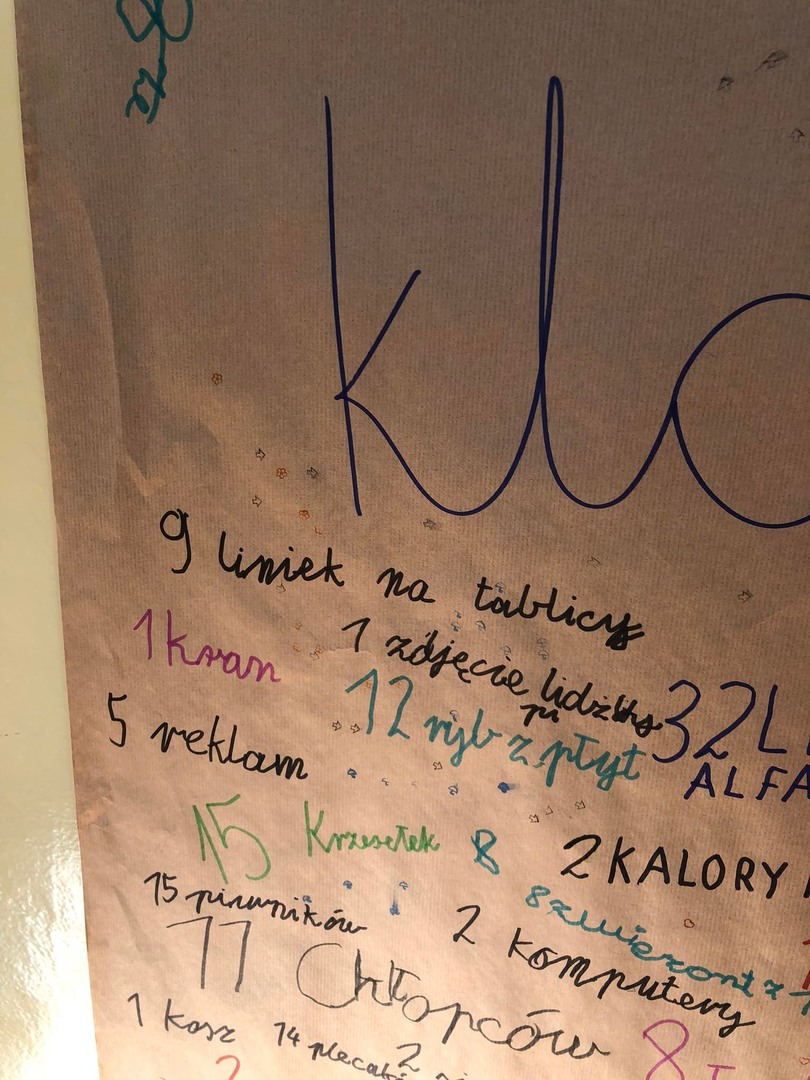 kla
9 liniek na tablicy
1 kran
1 zdjęcie
5 reklam
12 ryb z płyt
32 L
ALFA
15 Krzesełek
8
2 KALORY
15 piurników
8 zwierzont z
2 komputery
11 Chłopców
1 kosz
14 plecak
2
8
2